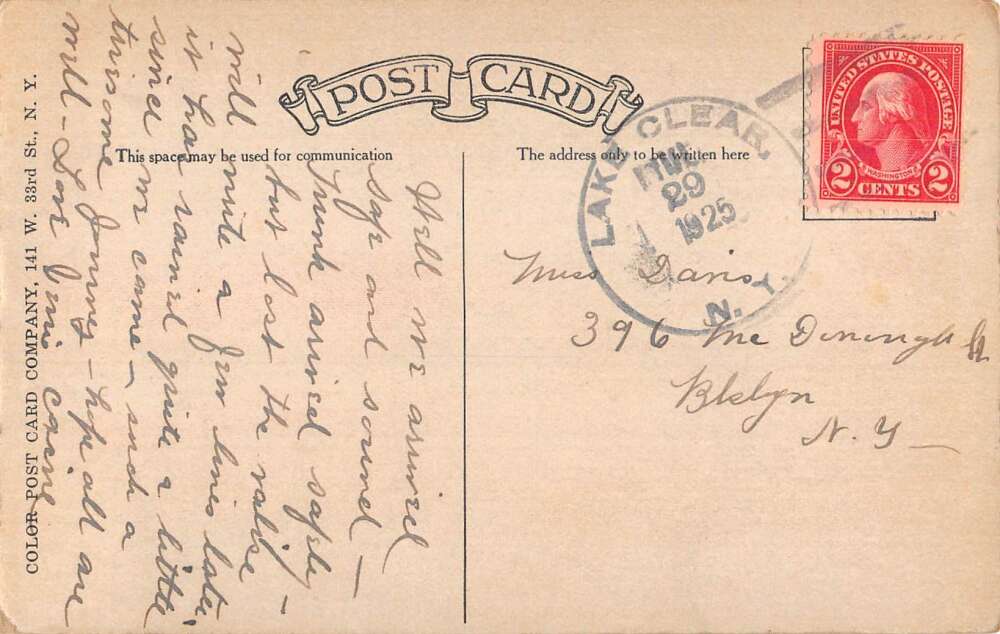 POST CARD
This space may be used for communication
The address only to be written here
UNITED STATES POSTAGE
WASHINGTON
2 CENTS 2
LAKE CLEAR,
29
1925
N. Y.
Miss Davis
396 Mc Donough St
Bklyn
N. Y —
Well we arrived
safe and sound —
Trunk arrived safely —
but lost the valise
will write a few lines later.
it has rained quite a little
since we came — such a
tiresome Journey — hope all are
well — Love
COLOR POST CARD COMPANY, 141 W. 33rd St., N. Y.